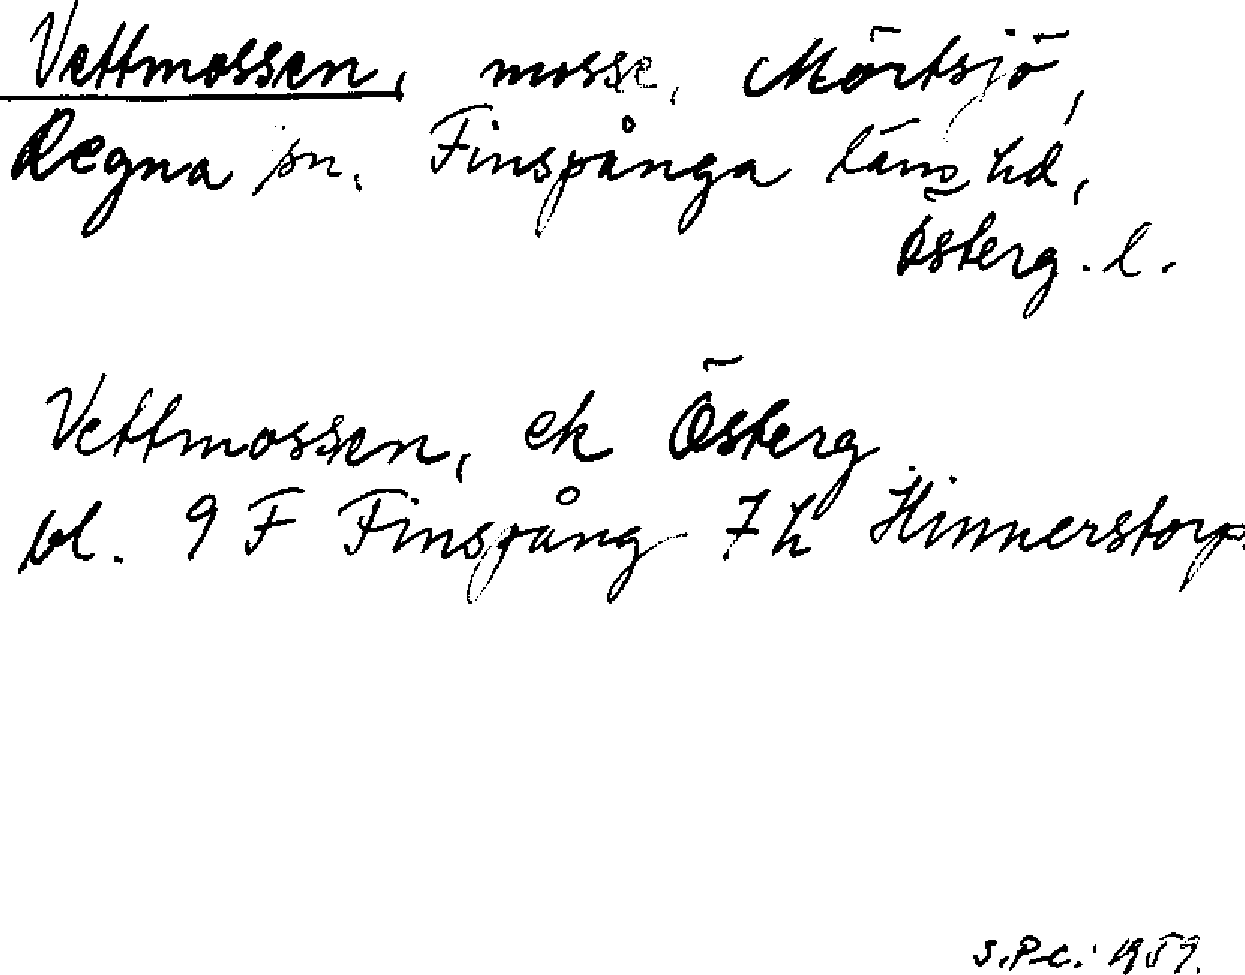 Vettmossen, mosse, Mörtsjö,
Regna sn. Finspånga läns hd,
Österg. l.
Vettmossen, ek Österg
bl. 9 F Finspång 7 h Hinnerstorp.
S.P-c. 1959.